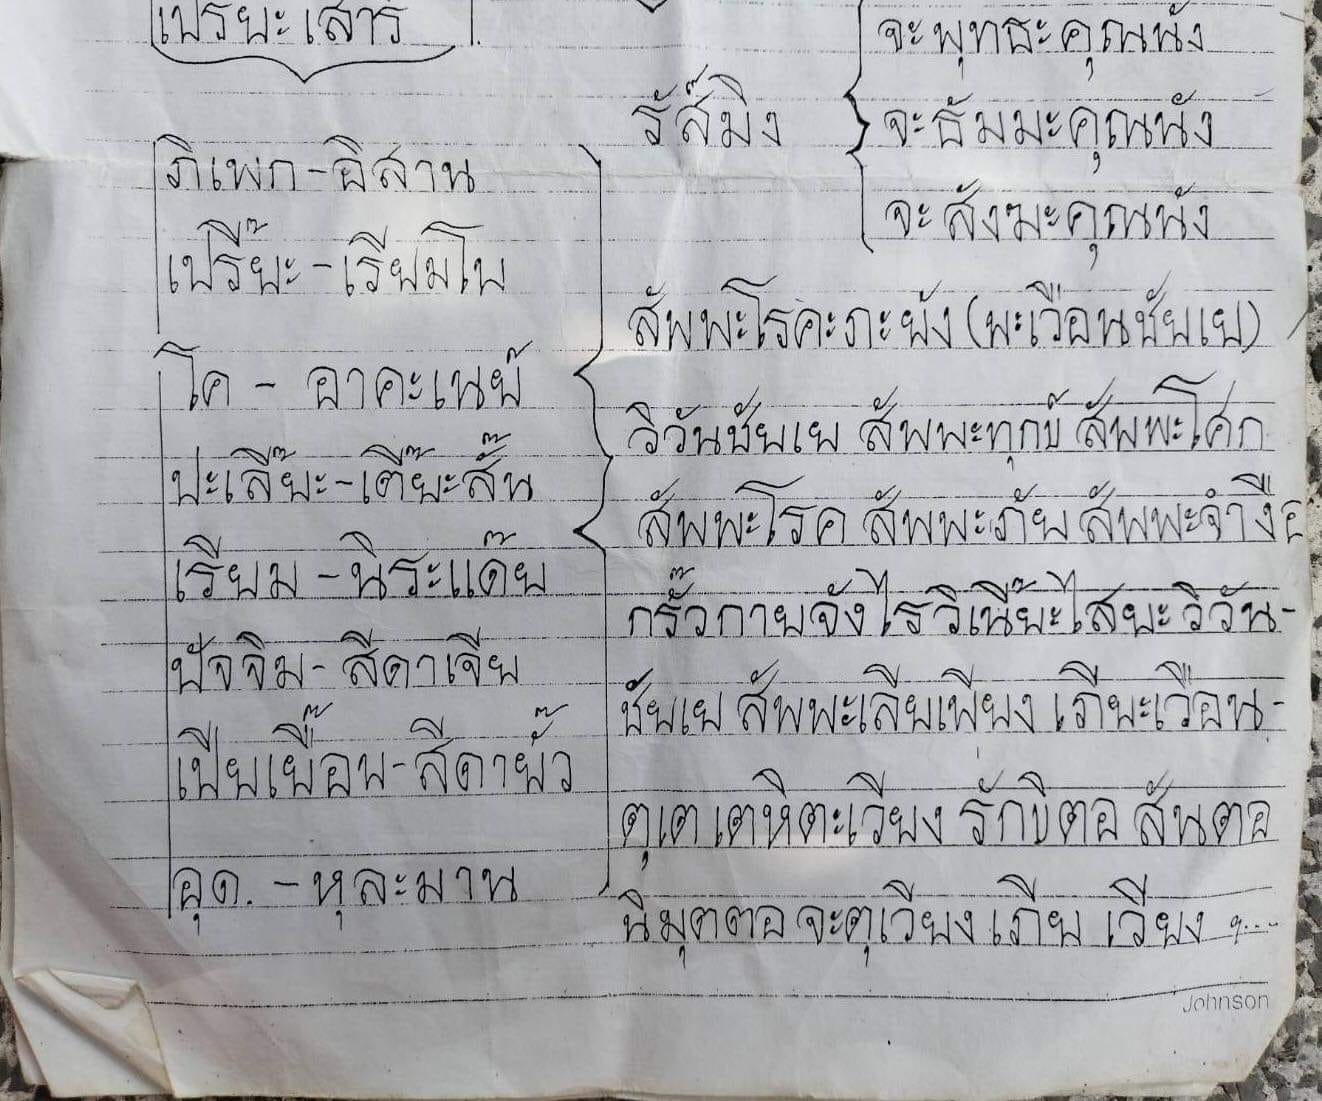 เปรียะเสาร์
ภิเพก-อิสาน
เปรี๊ยะ-เรียมโบ
โค - อาคะเนย์
ปะเลี๊ยะ-เตี๊ยะสั๊น
เรียม -นิระแด๊ย
ปัจจิม- สีดาเจีย
เปียเยื๊อน-สีดาย้ัว
อุด. -หุละมาน
จะพุทธะคุณนัง
รั๊ส๊มิง
จะธัมมะคุณนัง
จะสังฆะคุณนัง
สัพพะโรคะภะยัง (พะเวือนชัยเย)
วิวันชัยเย สัพพะทุกข์ สัพพะโศก
สัพพะโรค สัพพะภัย สัพพะจำงือ
กรั๊วกายจังไรวิเนี๊ยะไสยะวิวัน-
ชัยเย สัพพะเสียเพียง เภียะเวือน-
ตุเต เตหิตะเวียง รักขีตอ สันตอ
นิมุตตอ จะตุเวียง เภีย เวียง ๆ...
Johnson